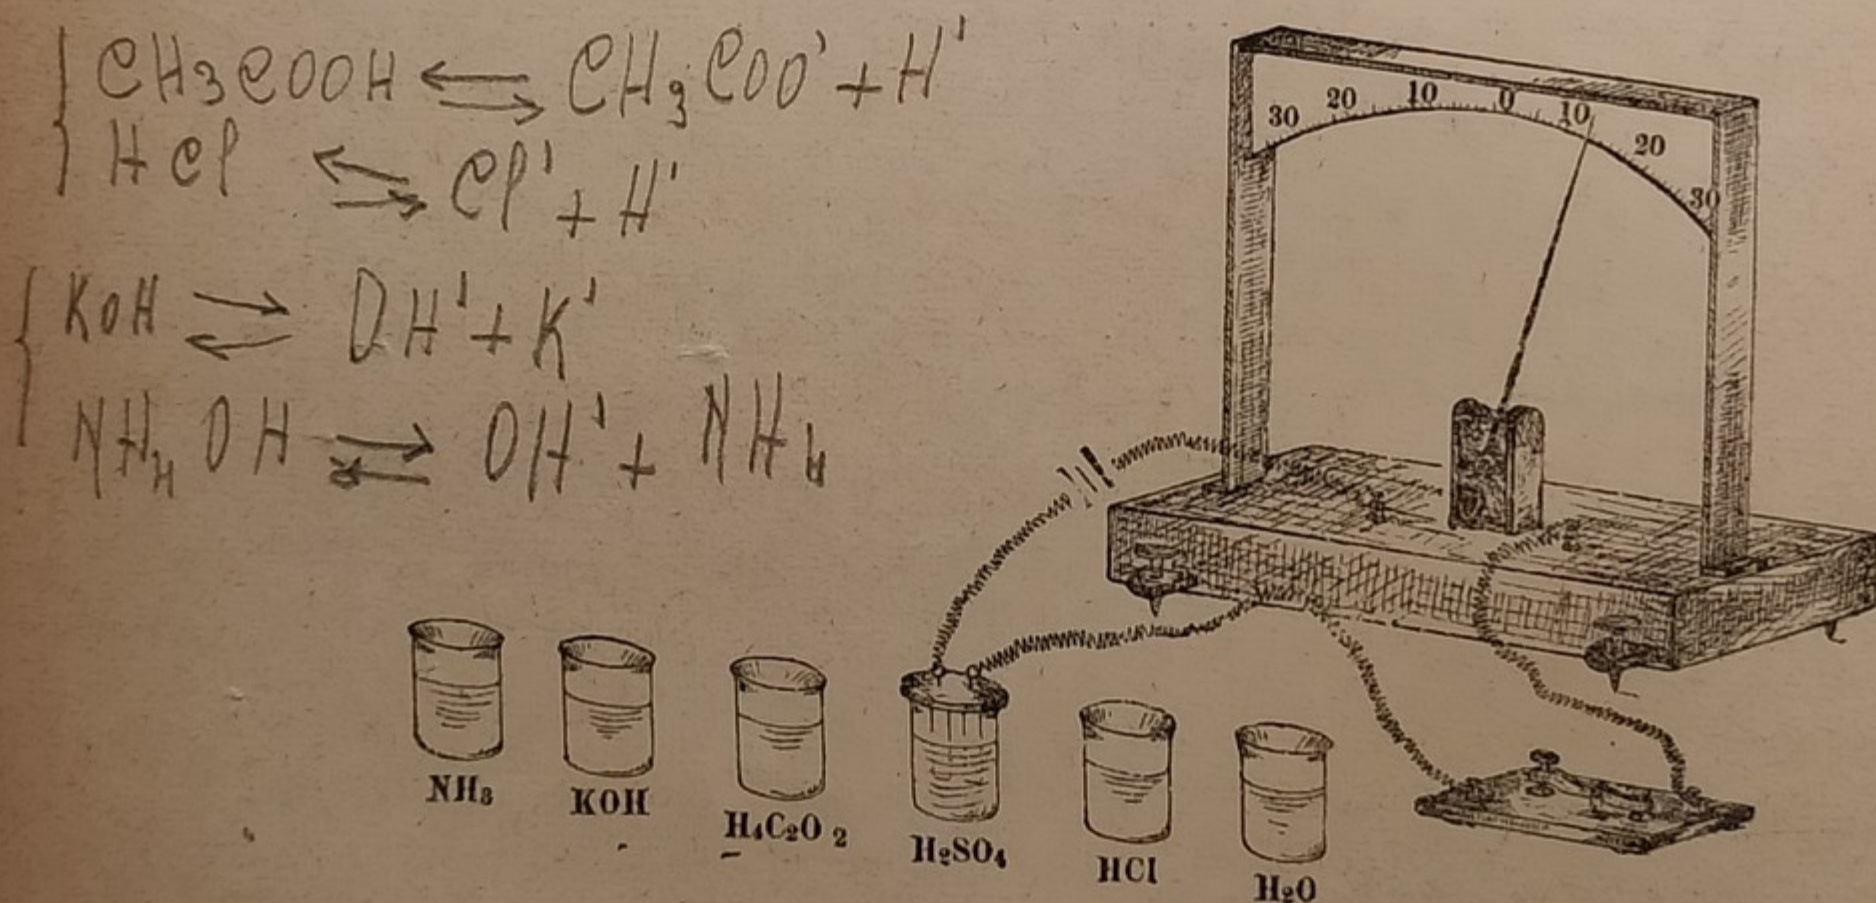 CH3COOH ⇆ CH3COO' + H'
HCl ⇆ Cl' + H'
KOH ⇄ OH' + K'
NH4OH ⇄ OH' + NH4
30 20 10 0 10 20 30
NH3 KOH H4C2O2 H2SO4 HCl H2O